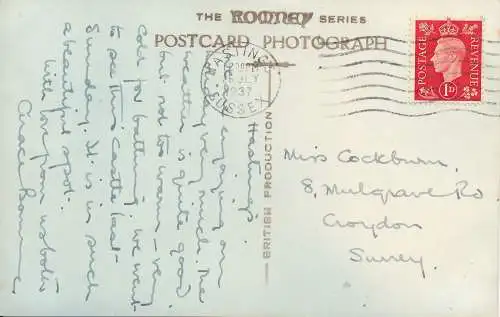 THE ROMNEY SERIES
POSTCARD PHOTOGRAPH
HASTINGS
JLY
1937
SUSSEX
POSTAGE
REVENUE
1D
BRITISH PRODUCTION
Hastings.
enjoying our
holiday very much. The
weather is quite good
but not too warm – very
cold for bathing. we went
to see this castle last
Sunday. It is in such
a beautiful spot.
With love from us both
Grace
Miss Cockburn,
8, Mulgrave Rd
Croydon
Surrey.